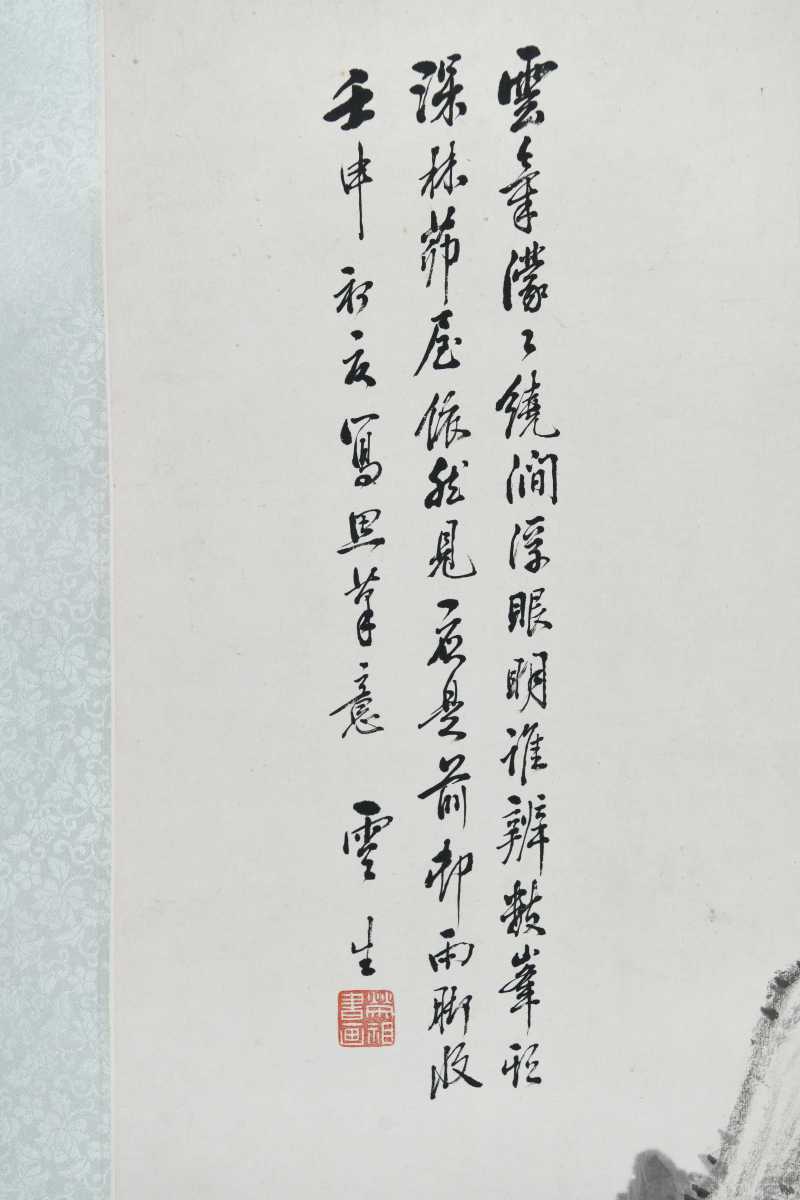 雲氣濛〻繞澗浮眼明誰辨數峯
深林茆屋依然見應是前邨雨腳收
壬申初夏寫思筆意 雲生
榮祖書画